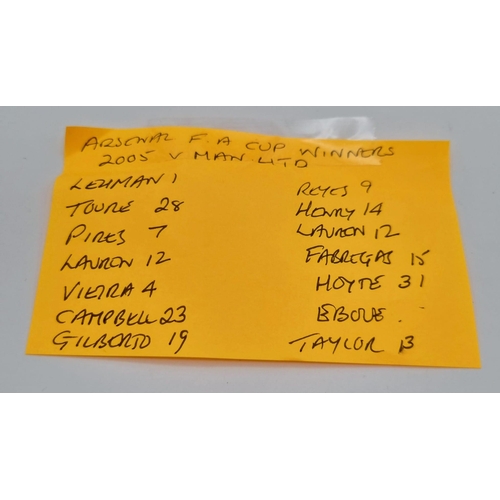 ARSENAL F.A CUP WINNERS
2005 V MAN UTD
LEHMAN 1
TOURE 28
PIRES 7
LAUREN 12
VIEIRA 4
CAMPBELL 23
GILBERTO 19
REYES 9
HENRY 14
LAUREN 12
FABREGAS 15
HOYTE 31
EBOUE .
TAYLOR 13